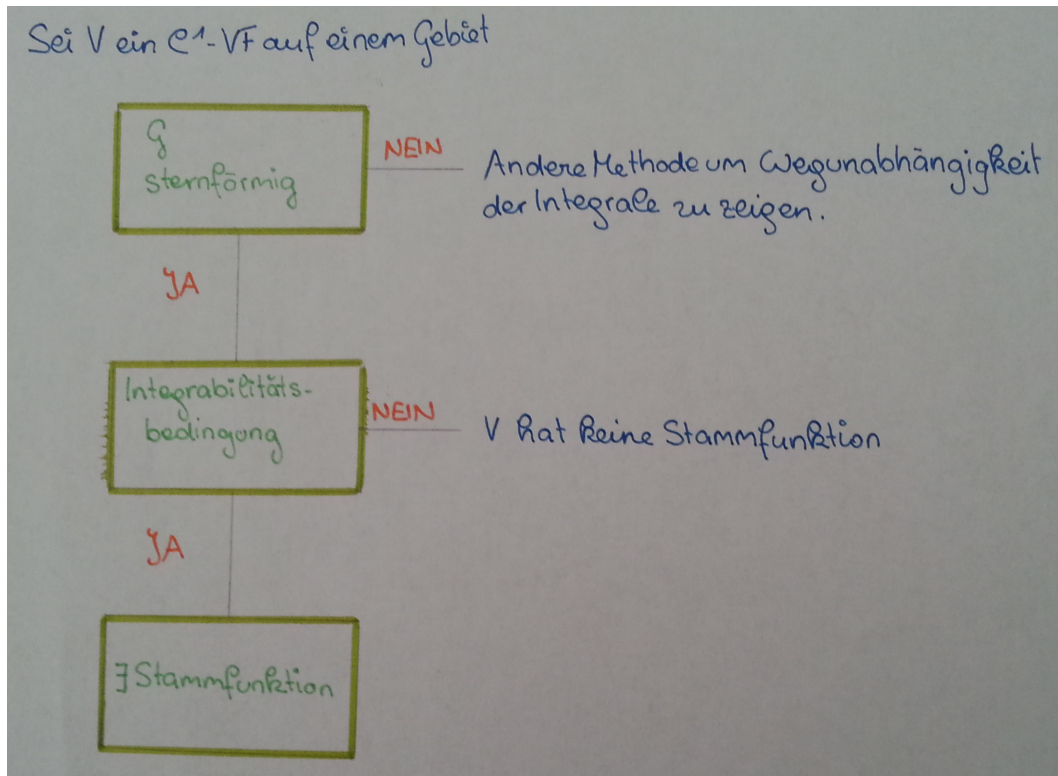 Sei V ein C¹-VF auf einem Gebiet
G
sternförmig
NEIN
Andere Methode um Wegunabhängigkeit
der Integrale zu zeigen.
JA
Integrabilitäts-
bedingung
NEIN
V hat keine Stammfunktion
JA
∃ Stammfunktion